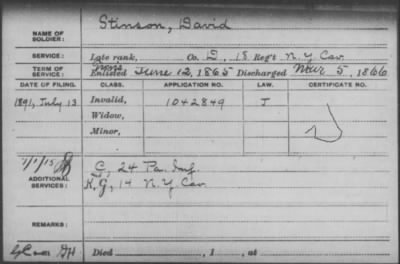 NAME OF SOLDIER: Stinson, David
SERVICE: Late rank, Co. D, 18 Reg't N.Y. Cav.
TERM OF SERVICE: Enlisted June 12, 1865 Discharged Mar 5, 1866
DATE OF FILING. CLASS. APPLICATION NO. LAW. CERTIFICATE NO.
1891, July 13 Invalid, 1042849 J
Widow,
Minor,
ADDITIONAL SERVICES: G, 24 Pa. Inf.
K, G, 14 N.Y. Cav.
REMARKS:
Died , 1 , at